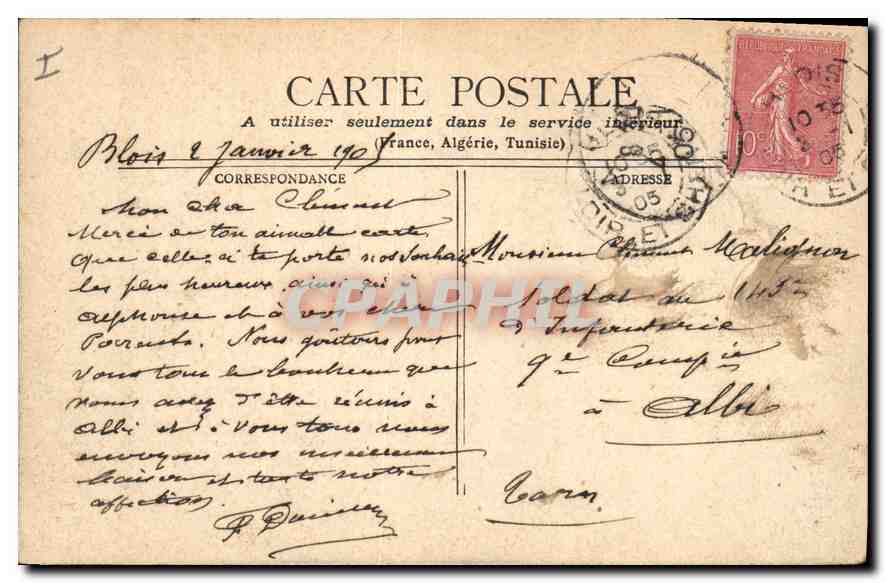 I
CARTE POSTALE
A utiliser seulement dans le service intérieur
(France, Algérie, Tunisie)
Blois 2 Janvier 1905
CORRESPONDANCE
Mon cher Clément
Merci de ton aimable carte
Que celle-ci te porte nos souhaits
les plus heureux ainsi qu'à
Alphonse et à vos chers
Parents. Nous goûtons pour
vous tous le bonheur que
vous avez d'être réunis à
Albi et à vous tous nous
envoyons nos meilleurs
baisers et toute notre
affection.
ADRESSE
Monsieur Clément Malignon
Soldat au 143e
d'Infanterie
9e Compie
à Albi
Tarn
REPUBLIQUE FRANÇAISE
10c
BLOIS
LOIR ET
05
CPAPHIL